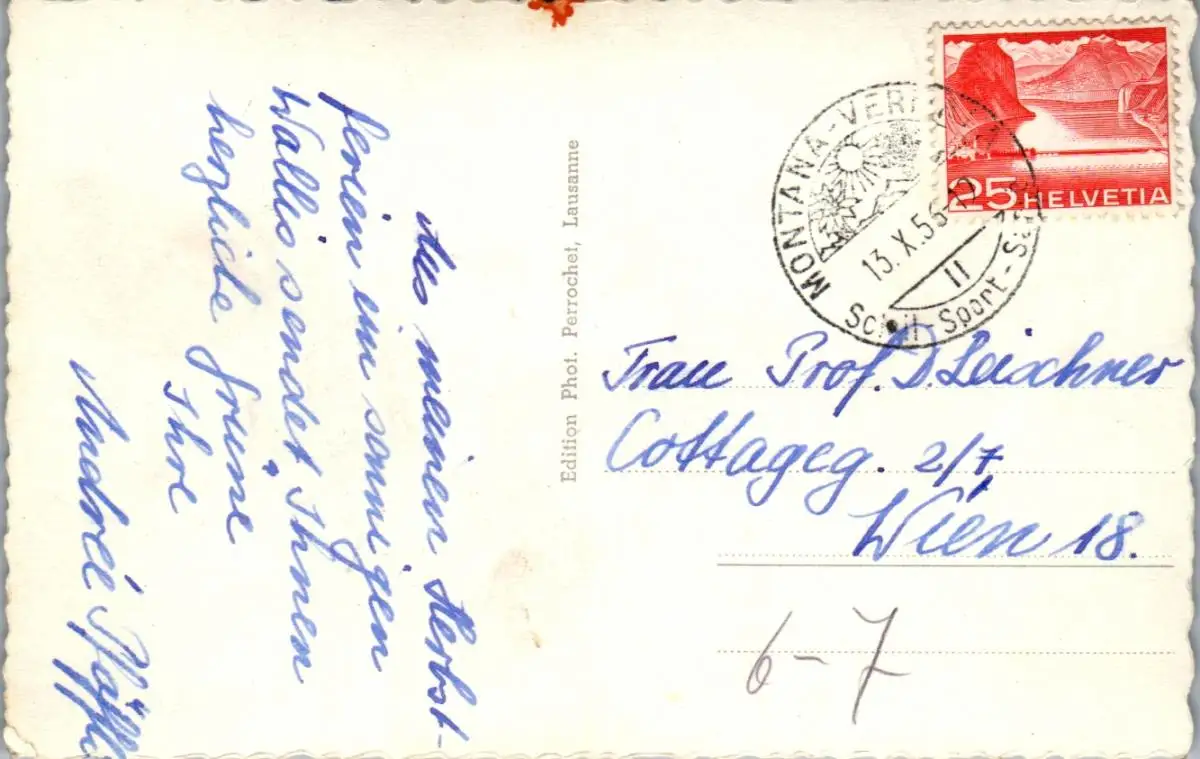 Aus meinen Herbst-
ferien im sonnigen
Wallis sendet Ihnen
herzliche Grüsse
Ihre
Andreé
Edition Phot. Perrochet, Lausanne
MONTANA-VER
13.X.56-
II
Sport-
25 HELVETIA
Frau Prof. D. Leischner
Cottageg. 2/7
Wien 18.
6-7